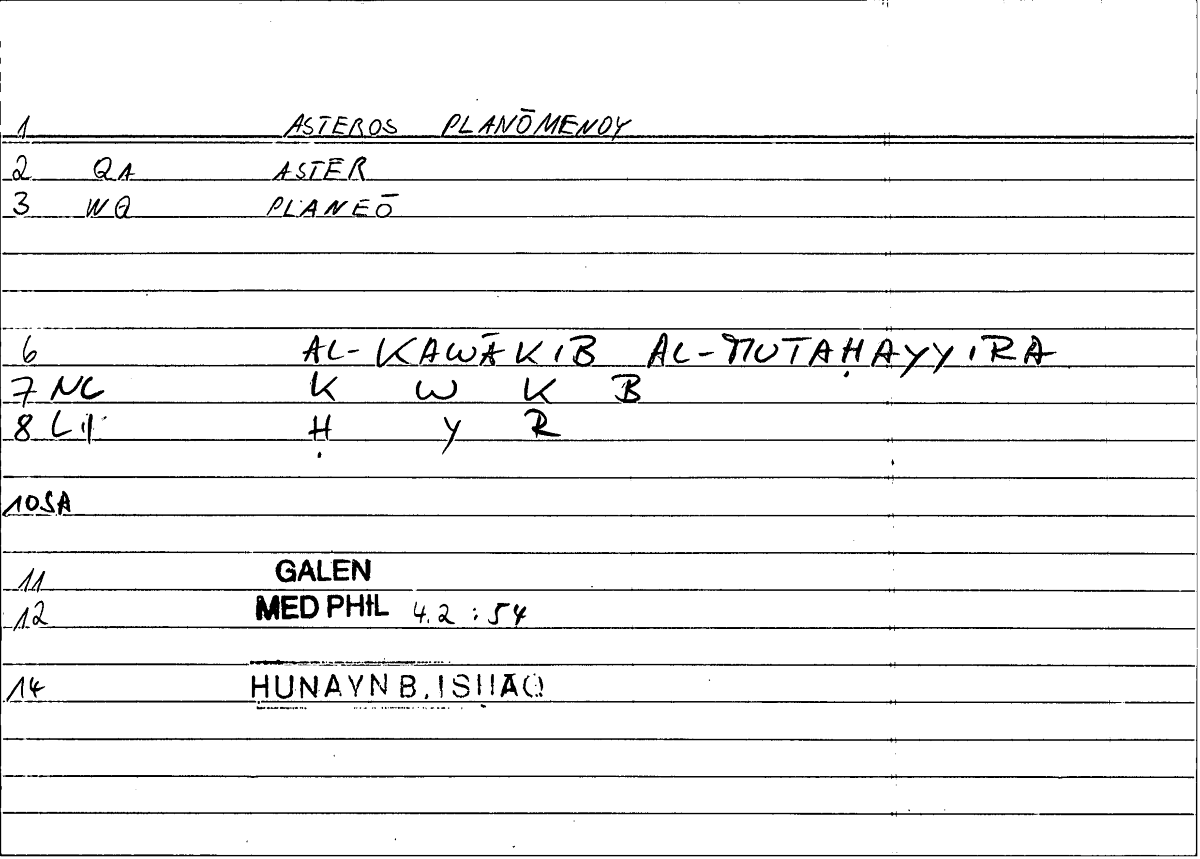 1 ASTEROS PLANŌMENOY
2 QA ASTER
3 WQ PLANEŌ
6 AL-KAWĀKIB AL-MUTAḤAYYIRA
7 NC K W K B
8 Ḥ Y R
10 SA
11 GALEN
12 MED PHIL 4.2 : 54
14 HUNAYN B. ISḤĀQ